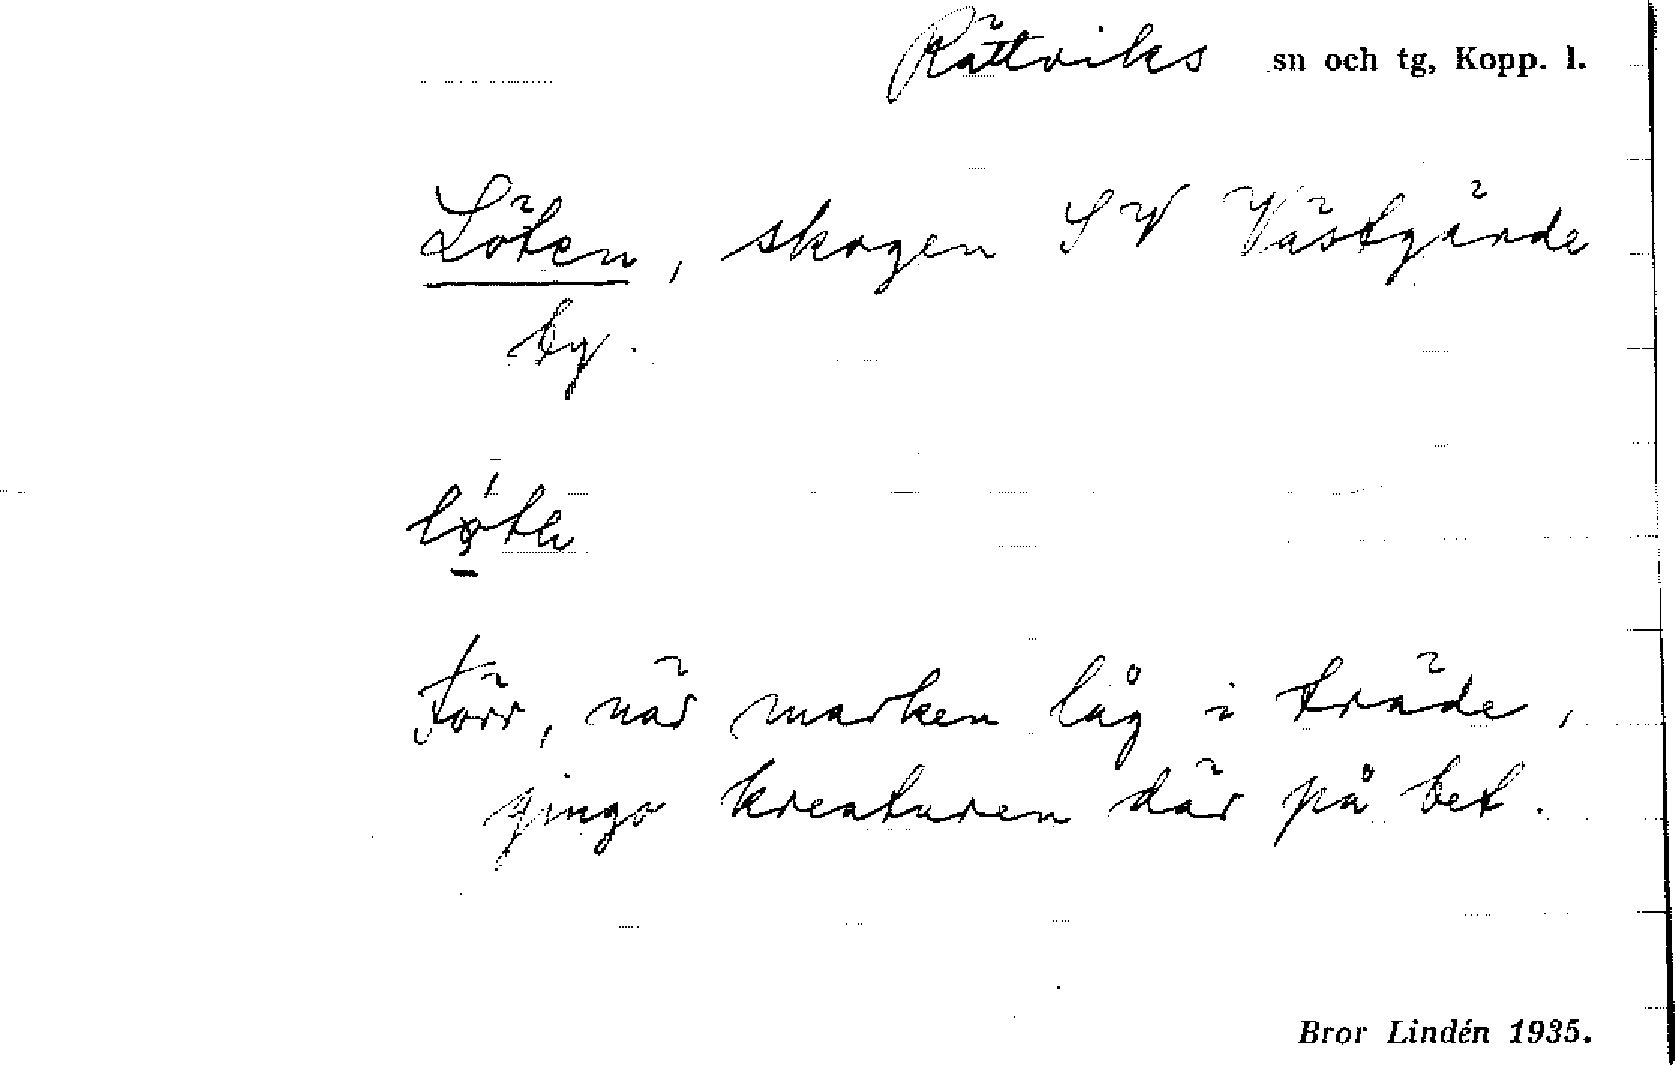 Rättviks sn och tg, Kopp. l.
Löten, skogen SV Västgärde
by.
Förr, när marken låg i träde,
gingo kreaturen där på bet.
Bror Lindén 1935.